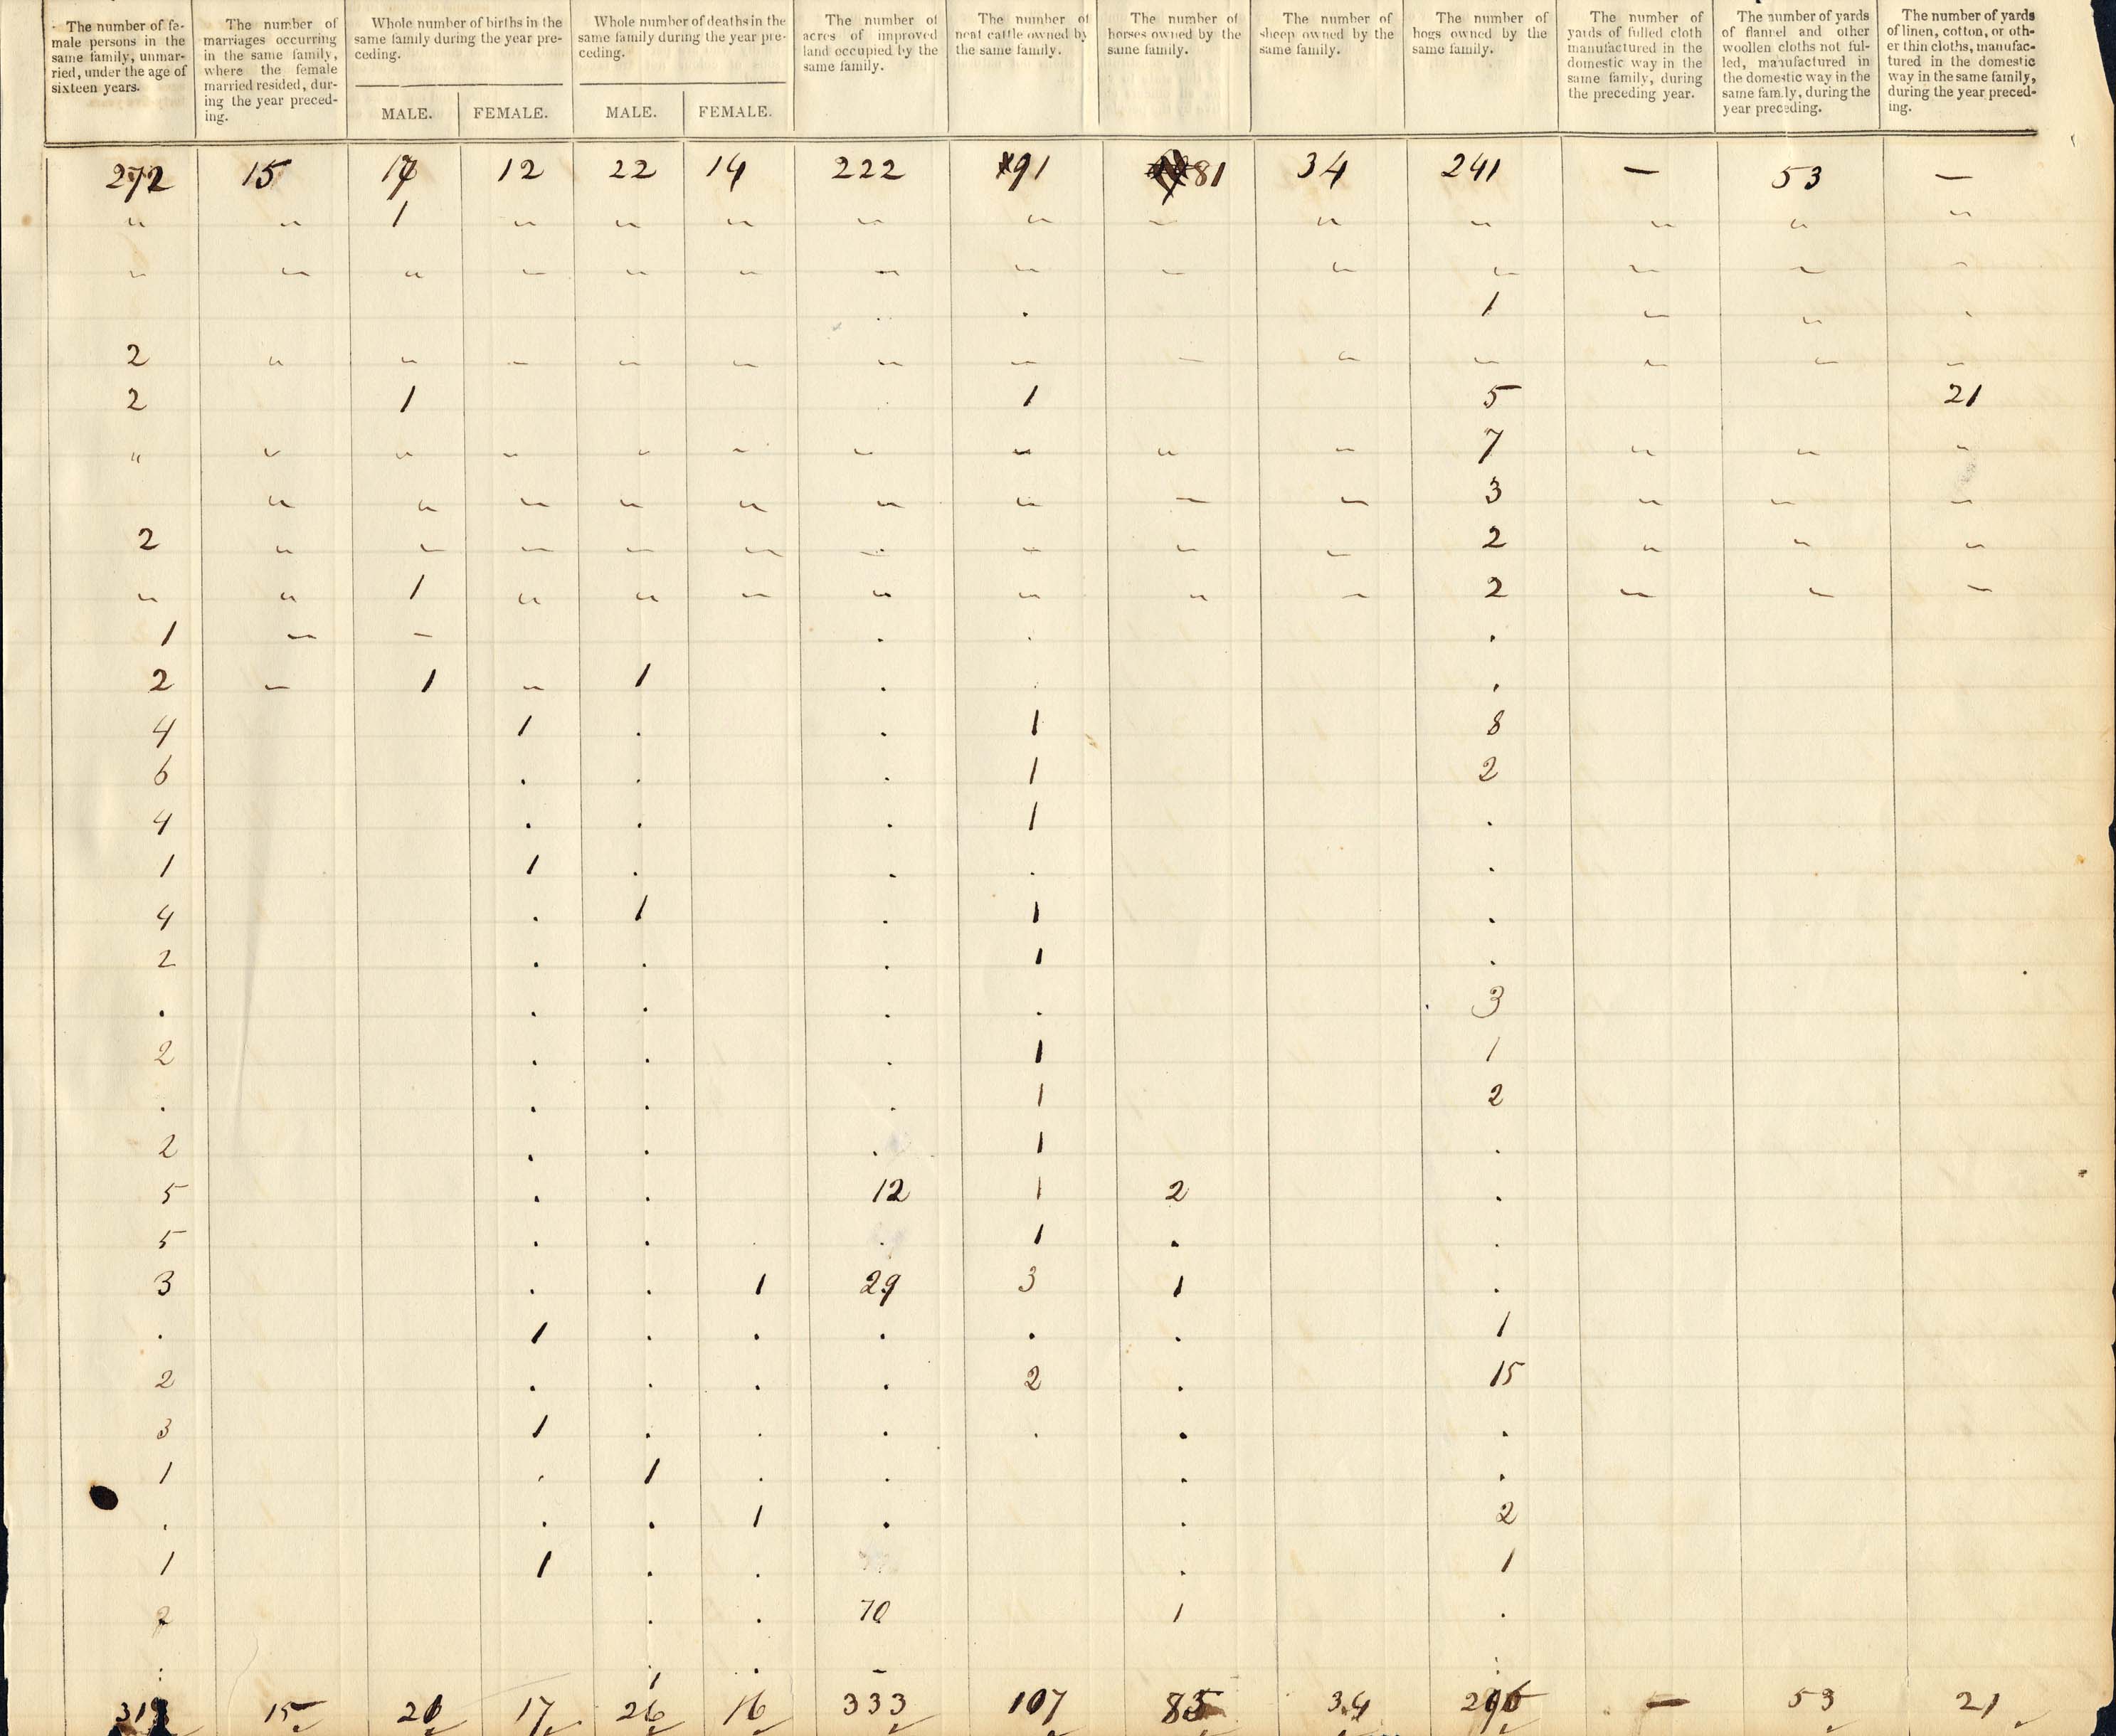 The number of fe-
male persons in the
same family, unmar-
ried, under the age of
sixteen years.
The number of
marriages occurring
in the same family,
where the female
married resided, dur-
ing the year preced-
ing.
Whole number of births in the
same family during the year pre-
ceding.
MALE. FEMALE.
Whole number of deaths in the
same family during the year pre-
ceding.
MALE. FEMALE.
The number of
acres of improved
land occupied by the
same family.
The number of
neat cattle owned by
the same family.
The number of
horses owned by the
same family.
The number of
sheep owned by the
same family.
The number of
hogs owned by the
same family.
The number of
yards of fulled cloth
manufactured in the
domestic way in the
same family, during
the preceding year.
The number of yards
of flannel and other
woollen cloths not ful-
led, manufactured in
the domestic way in the
same family, during the
year preceding.
The number of yards
of linen, cotton, or oth-
er thin cloths, manufac-
tured in the domestic
way in the same family,
during the year preced-
ing.
272 15 17 12 22 14 222 91 81 34 241 — 53 —
" " 1 " " " " " " " " " " "
" " " " " " " " " " " " " "
. . 1 " " .
2 " " " " " " " " " " " " "
2 1 1 5 21
" " " " " " " " " " 7 " " "
" " " " " " " " " 3 " " "
2 " " " " " " " " " 2 " " "
" " 1 " " " " " " " 2 " " "
1 " " . . .
2 " 1 " 1 . . .
4 1 . . 1 8
6 . . . 1 2
4 . . . 1 .
1 1 . . . .
4 . 1 . 1 .
2 . . . 1 .
. . . . . 3
2 . . . 1 1
. . . . 1 2
2 . . . 1 .
5 . . 12 1 2 .
5 . . . 1 . .
3 . . 1 29 3 1 .
. 1 . . . . . 1
2 . . . . 2 . 15
3 1 . . . . . .
1 . 1 . . . .
. . . 1 . . 2
1 1 . . . 1
2 . . 70 1 .
: 1 . - :
15 20 17 26 16 333 107 85 34 — 53 21